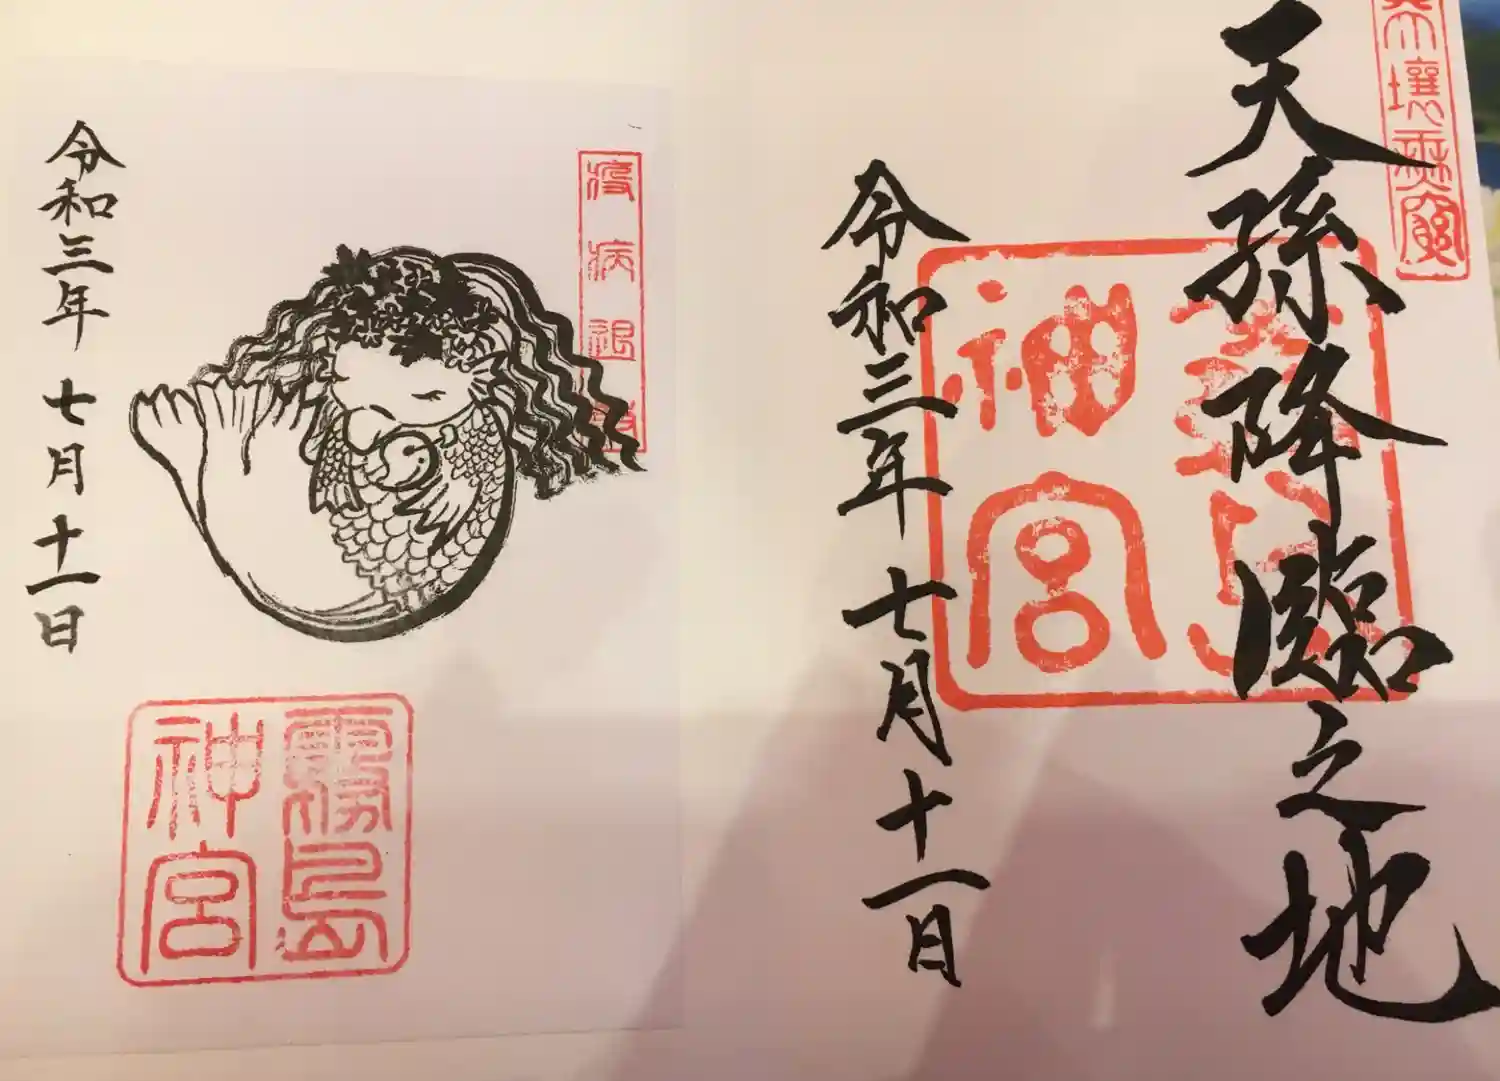 天壤無窮
天孫降臨之地
霧島
神宮
令和三年 七月十一日
疫病退散
霧島
神宮
令和三年 七月十一日